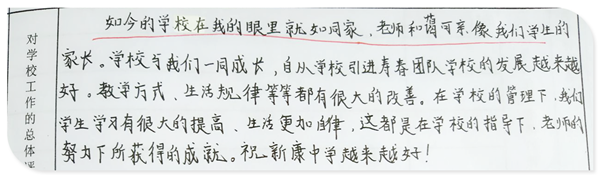 对学校工作的总体评
如今的学校在我的眼里就如同家，老师和蔼可亲像我们学生的
家长。学校与我们一同成长，自从学校引进青春团队学校的发展越来越
好。教学方式、生活规律等等都有很大的改善。在学校的管理下，我们
学生学习有很大的提高、生活更加自律，这都是在学校的指导下，老师的
努力下所获得的成就。祝新康中学越来越好！